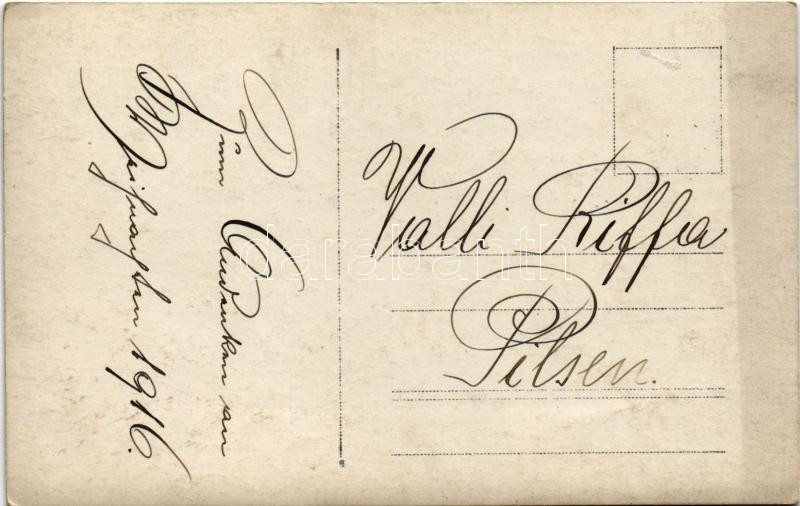 Zum Andenken an
Weihnachten 1916.
Valli Kiffla
Pilsen.
darabanth